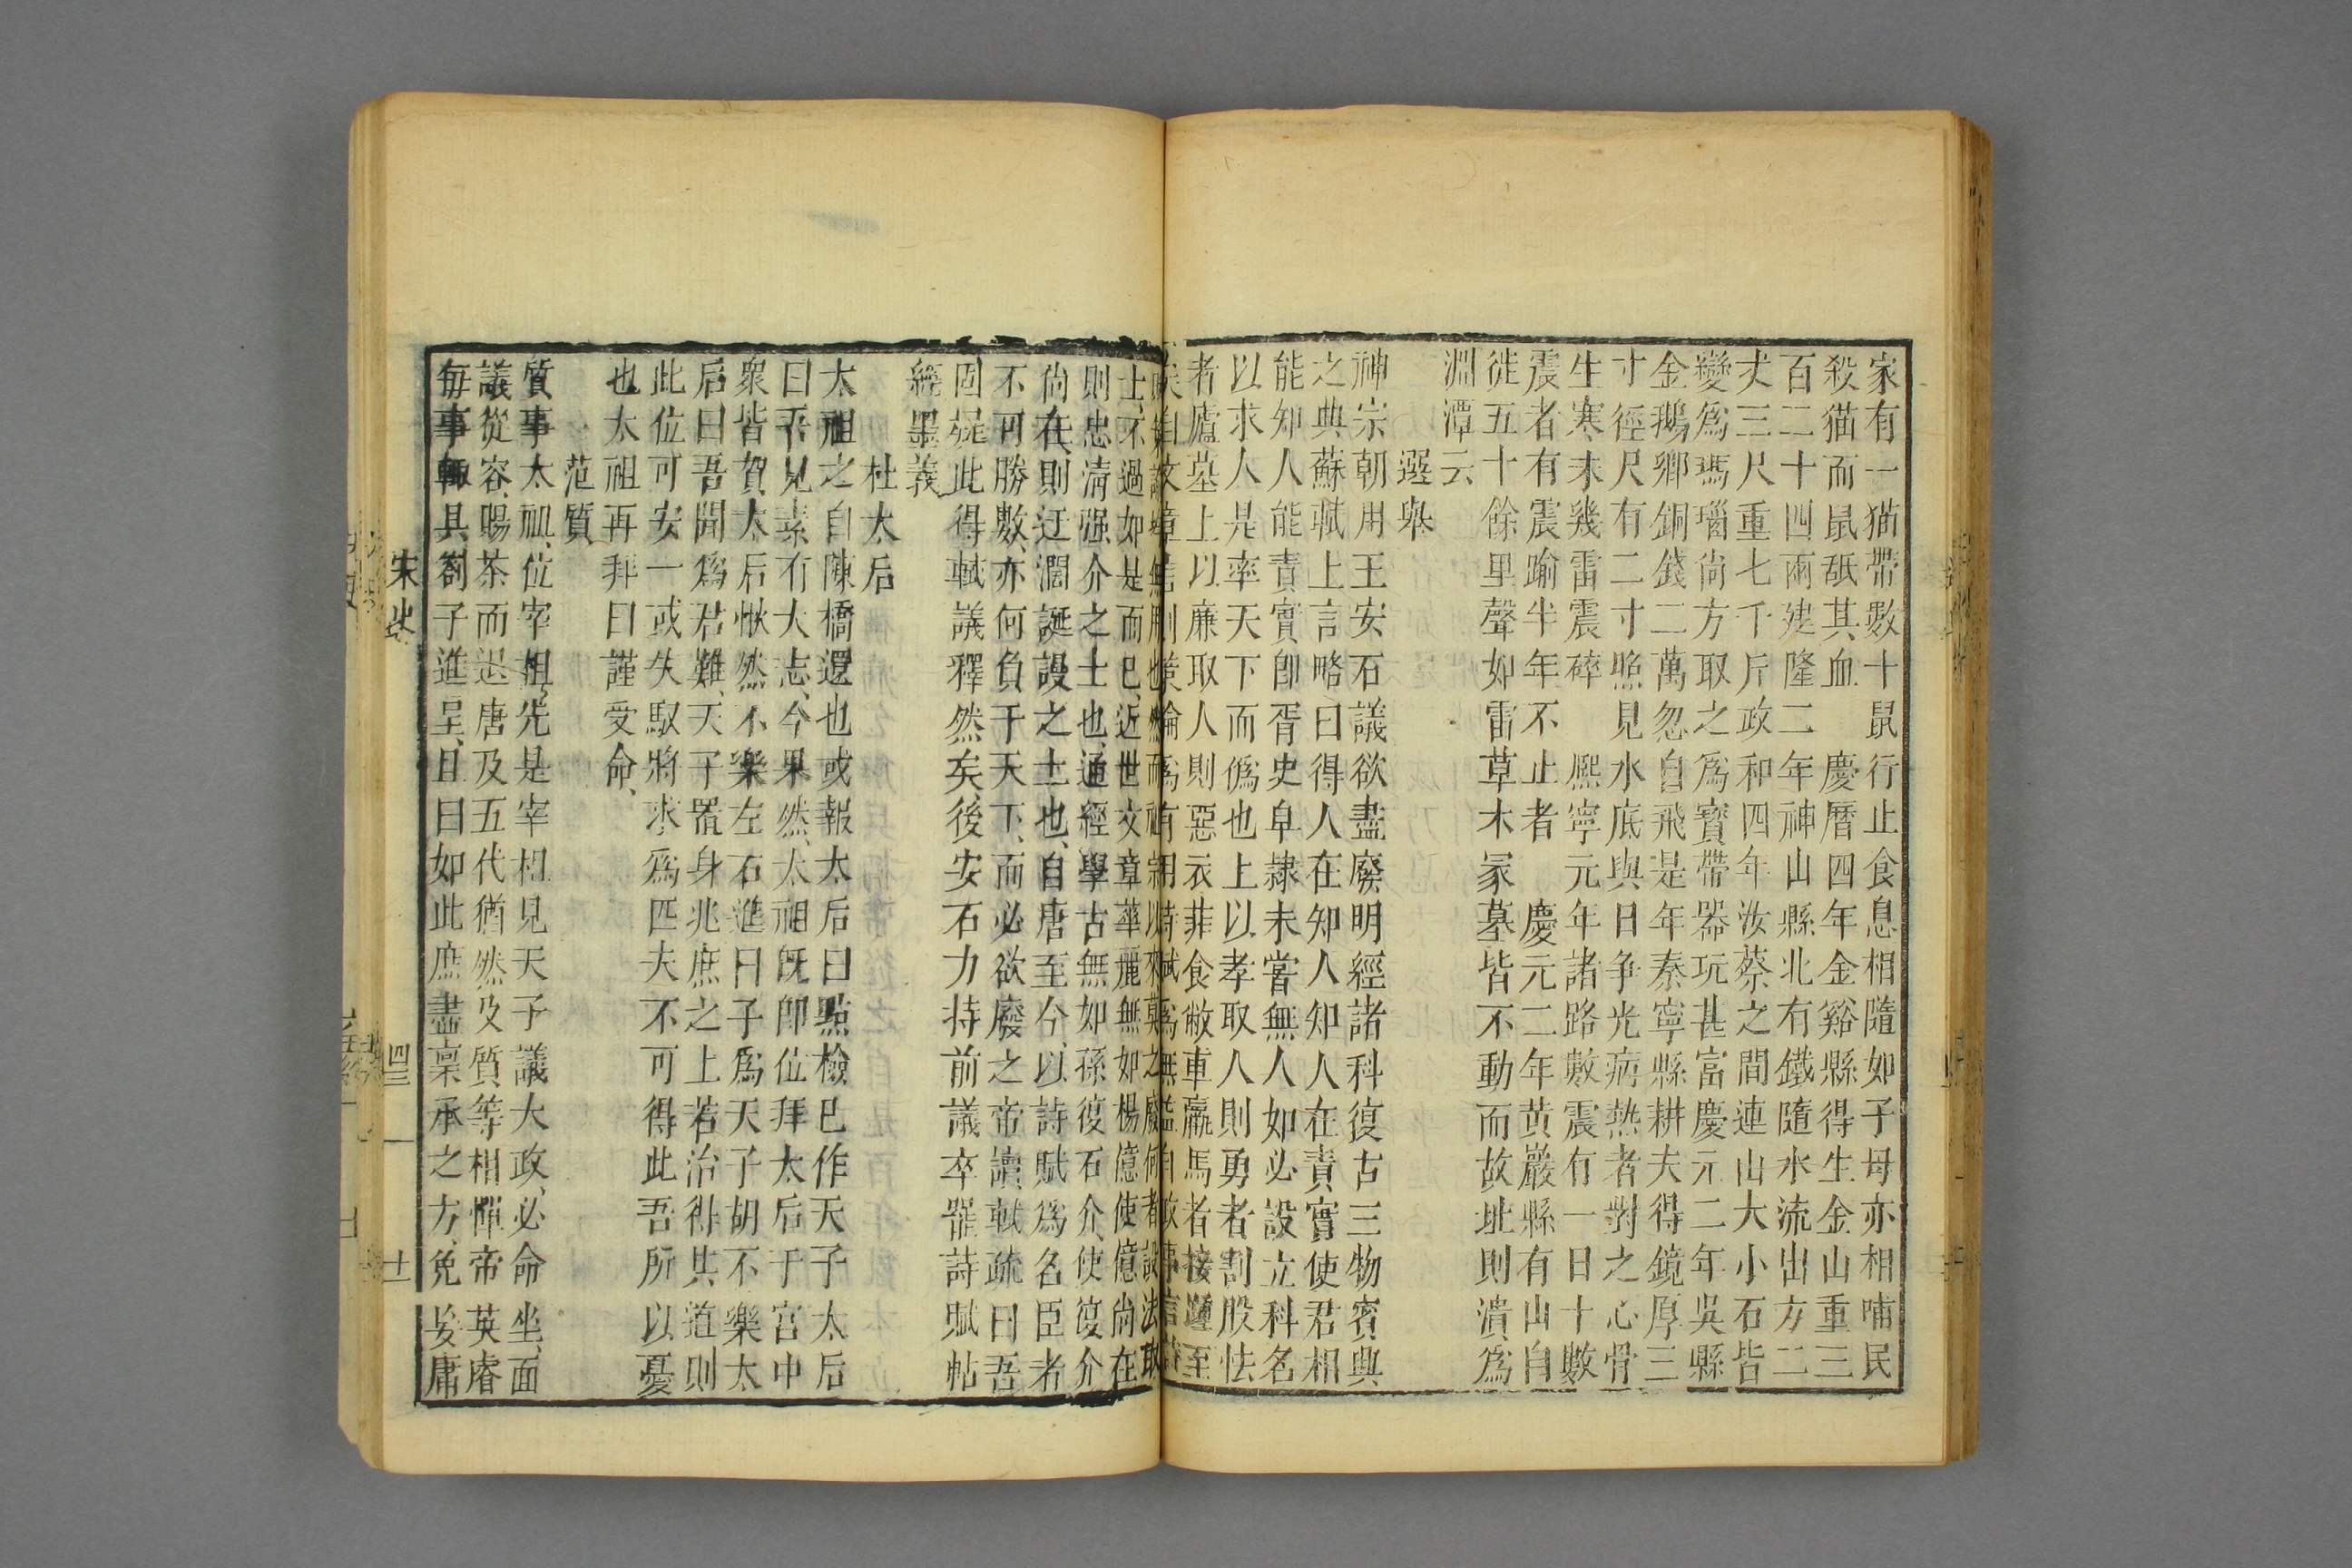 家有一猫帶數十鼠行止食息相隨如子母亦相哺民
殺猫而鼠舐其血　慶曆四年金谿縣得生金山重三
百二十四兩建隆二年神山縣北有鐵隨水流出方二
丈三尺重七千斤政和四年汝蔡之間連山大小石皆
變爲瑪瑙尚方取之爲寳帶器玩甚富慶元二年吳縣
金鵝鄉銅錢二萬忽自飛是年泰寧縣耕夫得鏡厚三
寸徑尺有二寸照見水底與日争光病熱者對之心骨
生寒未幾雷震碎　熙寧元年諸路數震有一日十數
震者有震踰半年不止者　慶元二年黄巖縣有山自
徙五十餘里聲如雷草木冢墓皆不動而故址則潰爲
淵潭云
選舉
神宗朝用王安石議欲盡廢明經諸科復古三物賓興
之典蘇軾上言略曰得人在知人知人在責實使君相
能知人能責實卽胥史皁隸未嘗無人如必設立科名
以求人是率天下而僞也上以孝取人則勇者割股怯
者廬墓上以廉取人則惡衣菲食敝車羸馬者接踵至
矣自文章言則策論爲有用詩賦爲無益自政事言詩
士不過如是而已近世文章華麗無如楊億使億尚在
則忠清强介之士也通經學古無如孫復石介使復介
尚在則迂濶誕謾之士也自唐至今以詩賦爲名臣者
不可勝數亦何負于天下而必欲廢之帝讀軾疏曰吾
固疑此得軾議釋然矣後安石力持前議卒罷詩賦帖
經墨義
杜太后
太祖之自陳橋還也或報太后曰點檢已作天子太后
曰吾兒素有大志今果然太祖旣卽位拜太后于宫中
衆皆賀太后愀然不樂左右進曰子爲天子胡不樂太
后曰吾聞爲君難天子置身兆庶之上若治得其道則
此位可安一或失馭將求爲匹夫不可得此吾所以憂
也太祖再拜曰謹受命
范質
質事太祖位宰相先是宰相見天子議大政必命坐面
議從容賜茶而退唐及五代猶然及質等相憚帝英睿
每事輙具劄子進呈且曰如此庶盡稟承之方免妄庸
宋史
四三
十一